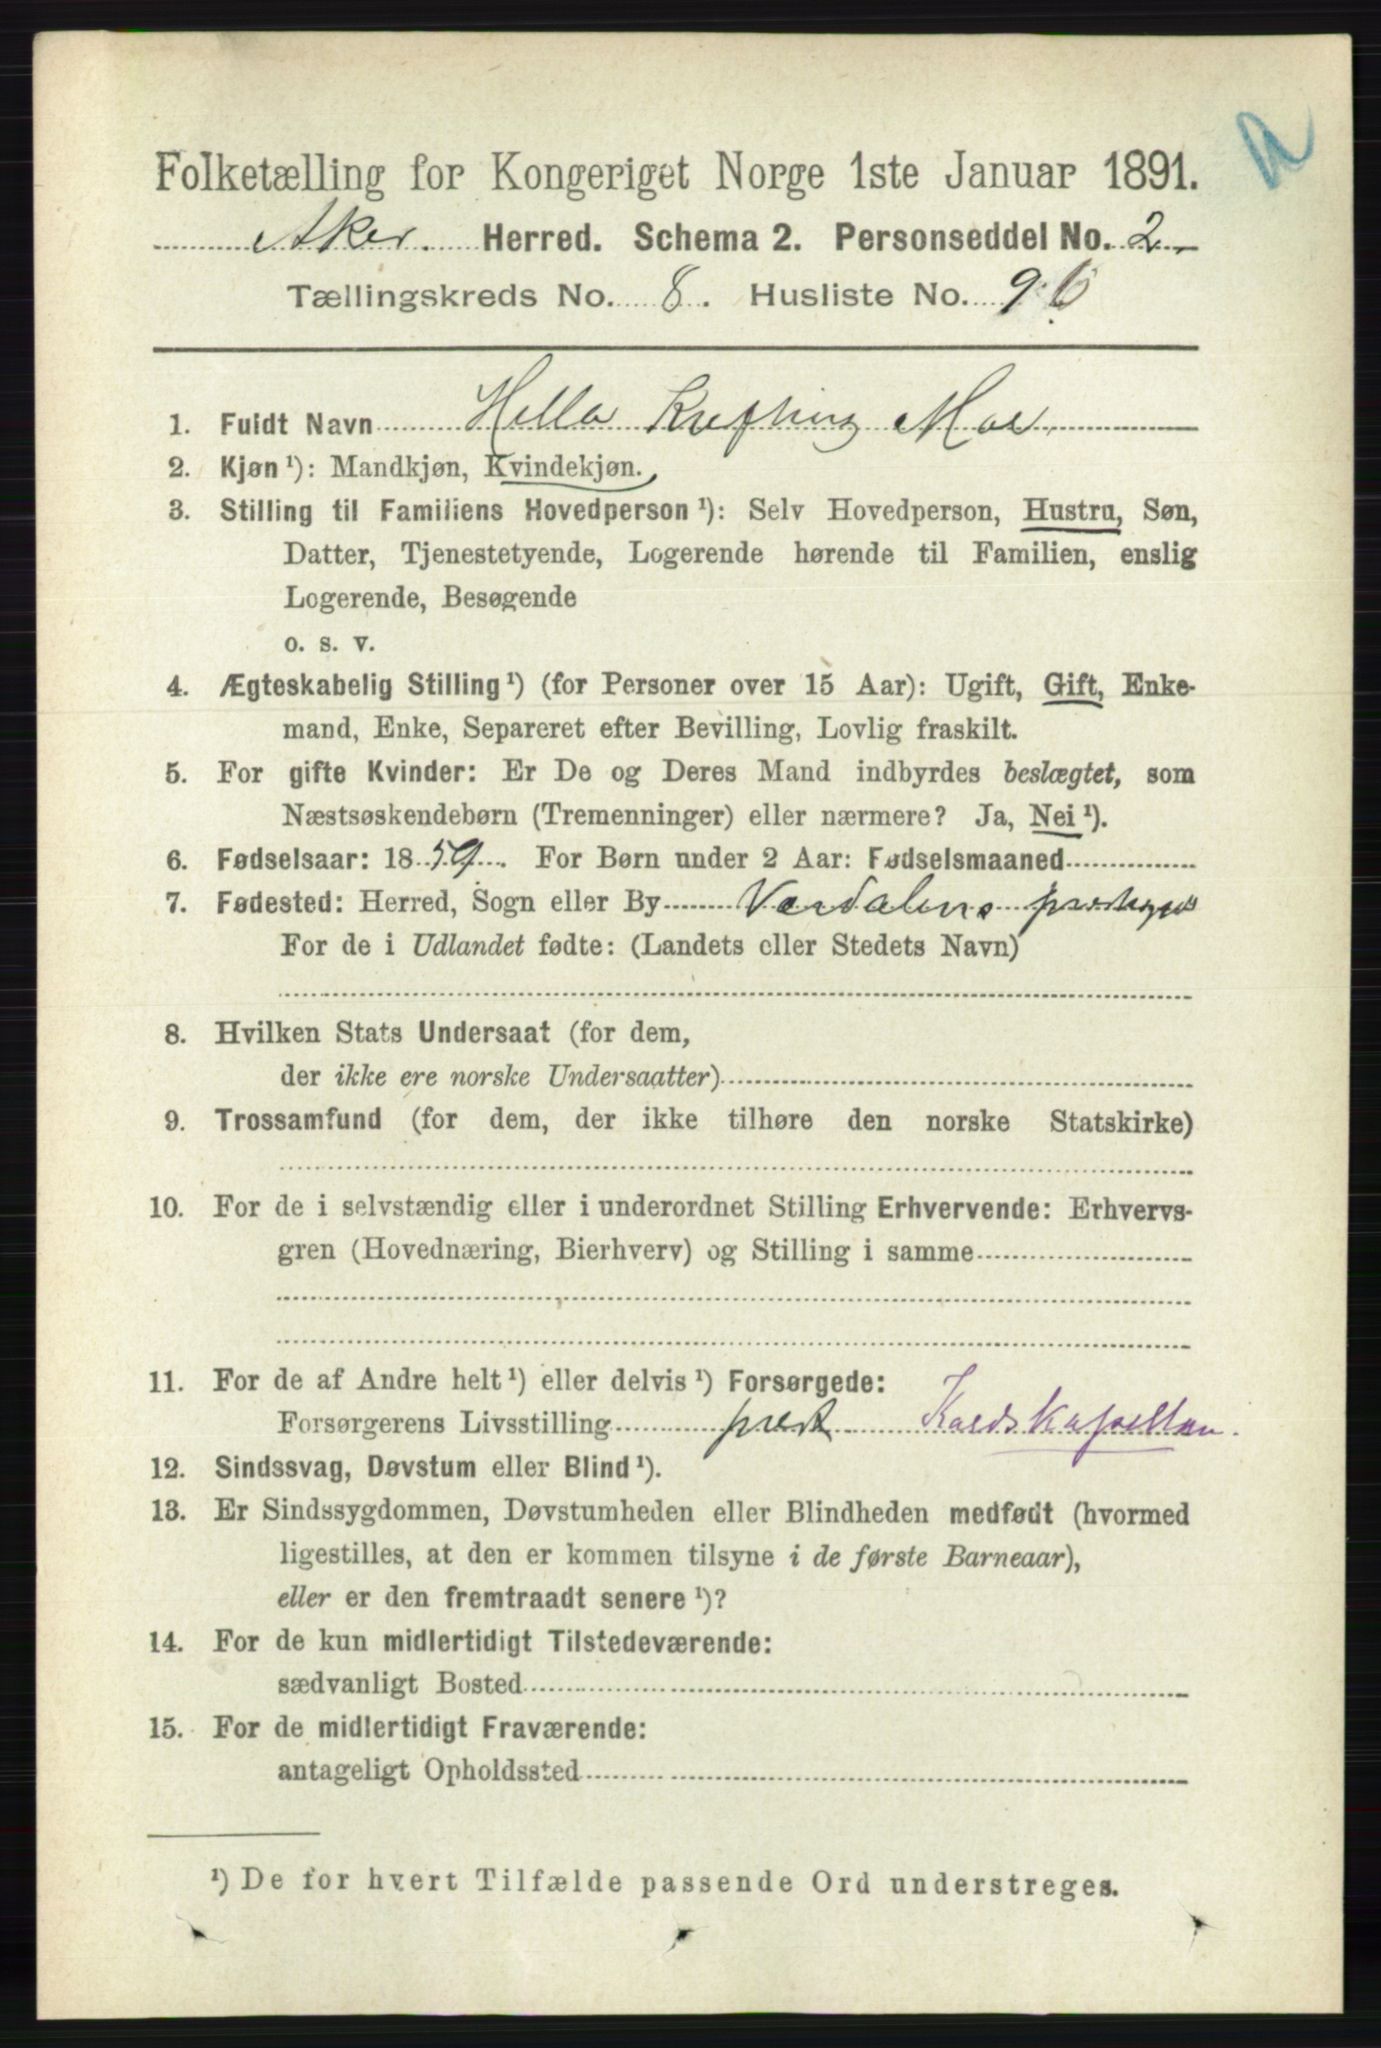 Folketælling for Kongeriget Norge 1ste Januar 1891.
Aker. Herred. Schema 2. Personseddel No. 2
Tællingskreds No. 8. Husliste No. 96
1. Fuldt Navn Hella Krefting Moe
2. Kjøn¹): Mandkjøn, Kvindekjøn.
3. Stilling til Familiens Hovedperson¹): Selv Hovedperson, Hustru, Søn,
Datter, Tjenestetyende, Logerende hørende til Familien, enslig
Logerende, Besøgende
o. s. v.
4. Ægteskabelig Stilling¹) (for Personer over 15 Aar): Ugift, Gift, Enke-
mand, Enke, Separeret efter Bevilling, Lovlig fraskilt.
5. For gifte Kvinder: Er De og Deres Mand indbyrdes beslægtet, som
Næstsøskendebørn (Tremenninger) eller nærmere? Ja, Nei¹).
6. Fødselsaar: 1859. For Børn under 2 Aar: Fødselsmaaned
7. Fødested: Herred, Sogn eller By Værdalens
For de i Udlandet fødte: (Landets eller Stedets Navn)
8. Hvilken Stats Undersaat (for dem,
der ikke ere norske Undersaatter)
9. Trossamfund (for dem, der ikke tilhøre den norske Statskirke)
10. For de i selvstændig eller i underordnet Stilling Erhvervende: Erhvervs-
gren (Hovednæring, Bierhverv) og Stilling i samme
11. For de af Andre helt¹) eller delvis¹) Forsørgede:
Forsørgerens Livsstilling prest
12. Sindssvag, Døvstum eller Blind¹).
13. Er Sindssygdommen, Døvstumheden eller Blindheden medfødt (hvormed
ligestilles, at den er kommen tilsyne i de første Barneaar),
eller er den fremtraadt senere¹)?
14. For de kun midlertidigt Tilstedeværende:
sædvanligt Bosted
15. For de midlertidigt Fraværende:
antageligt Opholdssted
¹) De for hvert Tilfælde passende Ord understreges.